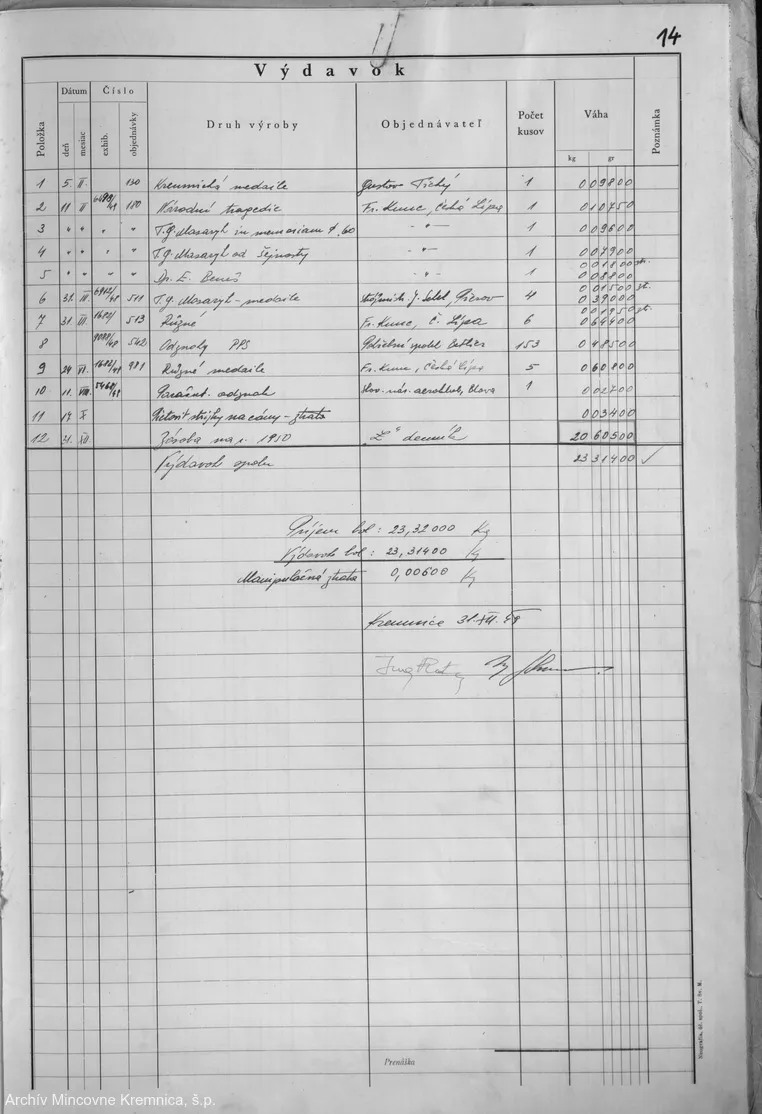 14
Výdavok
Položka Dátum Číslo Druh výroby Objednávateľ Počet kusov Váha Poznámka
deň mesiac exhib. objednávky kg gr
1 5. II. 130 Kremnická medaile Gustav Tichý 1 0 09800
2 11 II 180 Národní tragedie Fr. Kunc, Česká Lípa 1 0 10750
3 " " " " T.G. Masaryk in memoriam 60 - " - 1 0 09600
4 " " " " T.G. Masaryk od Šejnosty - " - 1 0 07900
0 01800 str.
5 " " " " Dr. E. Beneš - " - 1 0 08800
0 01500 str.
6 31. III 511 T.G. Masaryk - medaile 4 0 39000
0 01950 str.
7 31. III 513 Různé Fr. Kunc, Č. Lípa 6 0 64400
8 542 Odznaky PPS 153 0 48500
9 24 VI. 981 Různé medaile Fr. Kunc, Česká Lípa 5 0 60800
10 11. VIII. Parašut. odznak Slov. nár. aeroklub, Blava 1 0 02700
11 17 X na cány - ztrata 0 03400
12 31. XII Zásoba na r. 1950 "Ž" denník 20 60500
Výdavok spolu 23 31400 ✓
Príjem bol : 23,32000 Kg
Výdavok bol : 23,31400 Kg
Manipulačná ztrata 0,00600 Kg
Kremnica 31. XII. 49
Prenáška
Archív Mincovne Kremnica, š.p.